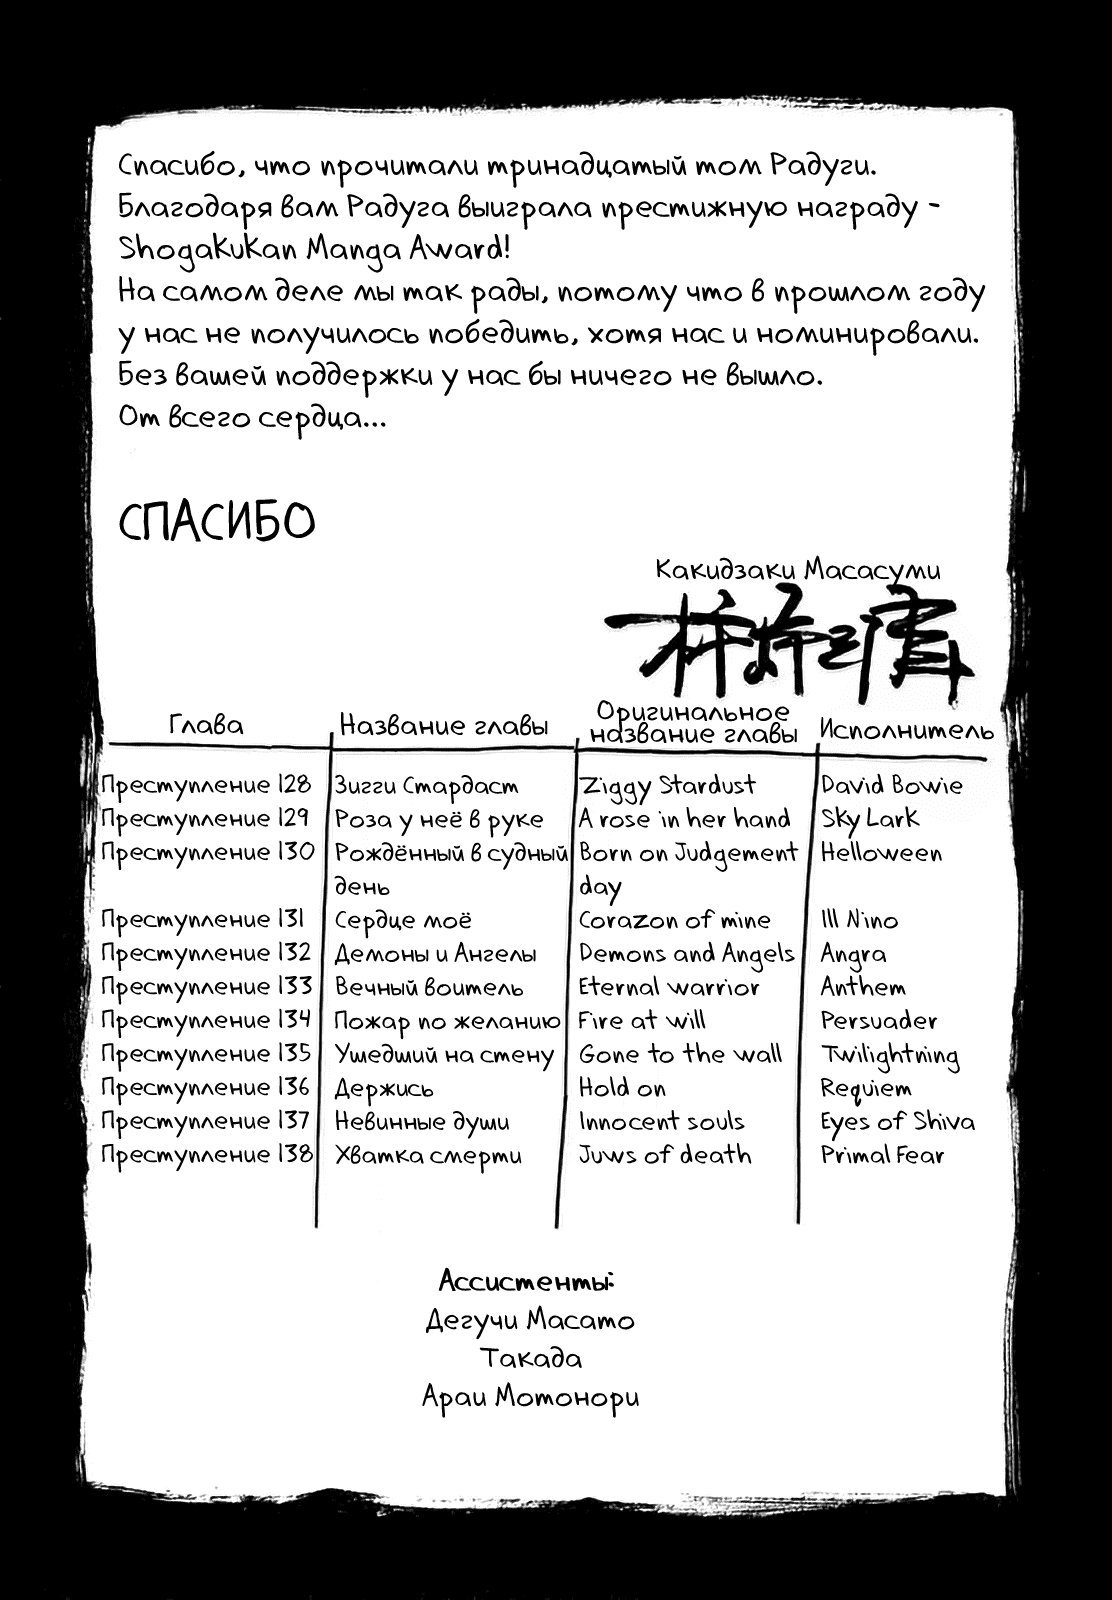 Спасибо, что прочитали тринадцатый том Радуги.
Благодаря вам Радуга выиграла престижную награду -
Shogakukan Manga Award!
На самом деле мы так рады, потому что в прошлом году
у нас не получилось победить, хотя нас и номинировали.
Без вашей поддержки у нас бы ничего не вышло.
От всего сердца...
СПАСИБО
Какидзаки Масасуми
Глава Название главы Оригинальное название главы Исполнитель
Преступление 128 Зигги Стардаст Ziggy Stardust David Bowie
Преступление 129 Роза у неё в руке A rose in her hand Sky Lark
Преступление 130 Рождённый в судный Born on Judgement Helloween
день day
Преступление 131 Сердце моё Corazon of mine Ill Nino
Преступление 132 Демоны и Ангелы Demons and Angels Angra
Преступление 133 Вечный воитель Eternal warrior Anthem
Преступление 134 Пожар по желанию Fire at will Persuader
Преступление 135 Ушедший на стену Gone to the wall Twilightning
Преступление 136 Держись Hold on Requiem
Преступление 137 Невинные души Innocent souls Eyes of Shiva
Преступление 138 Хватка смерти Juws of death Primal Fear
Ассистенты:
Дегучи Масато
Такада
Араи Мотонори